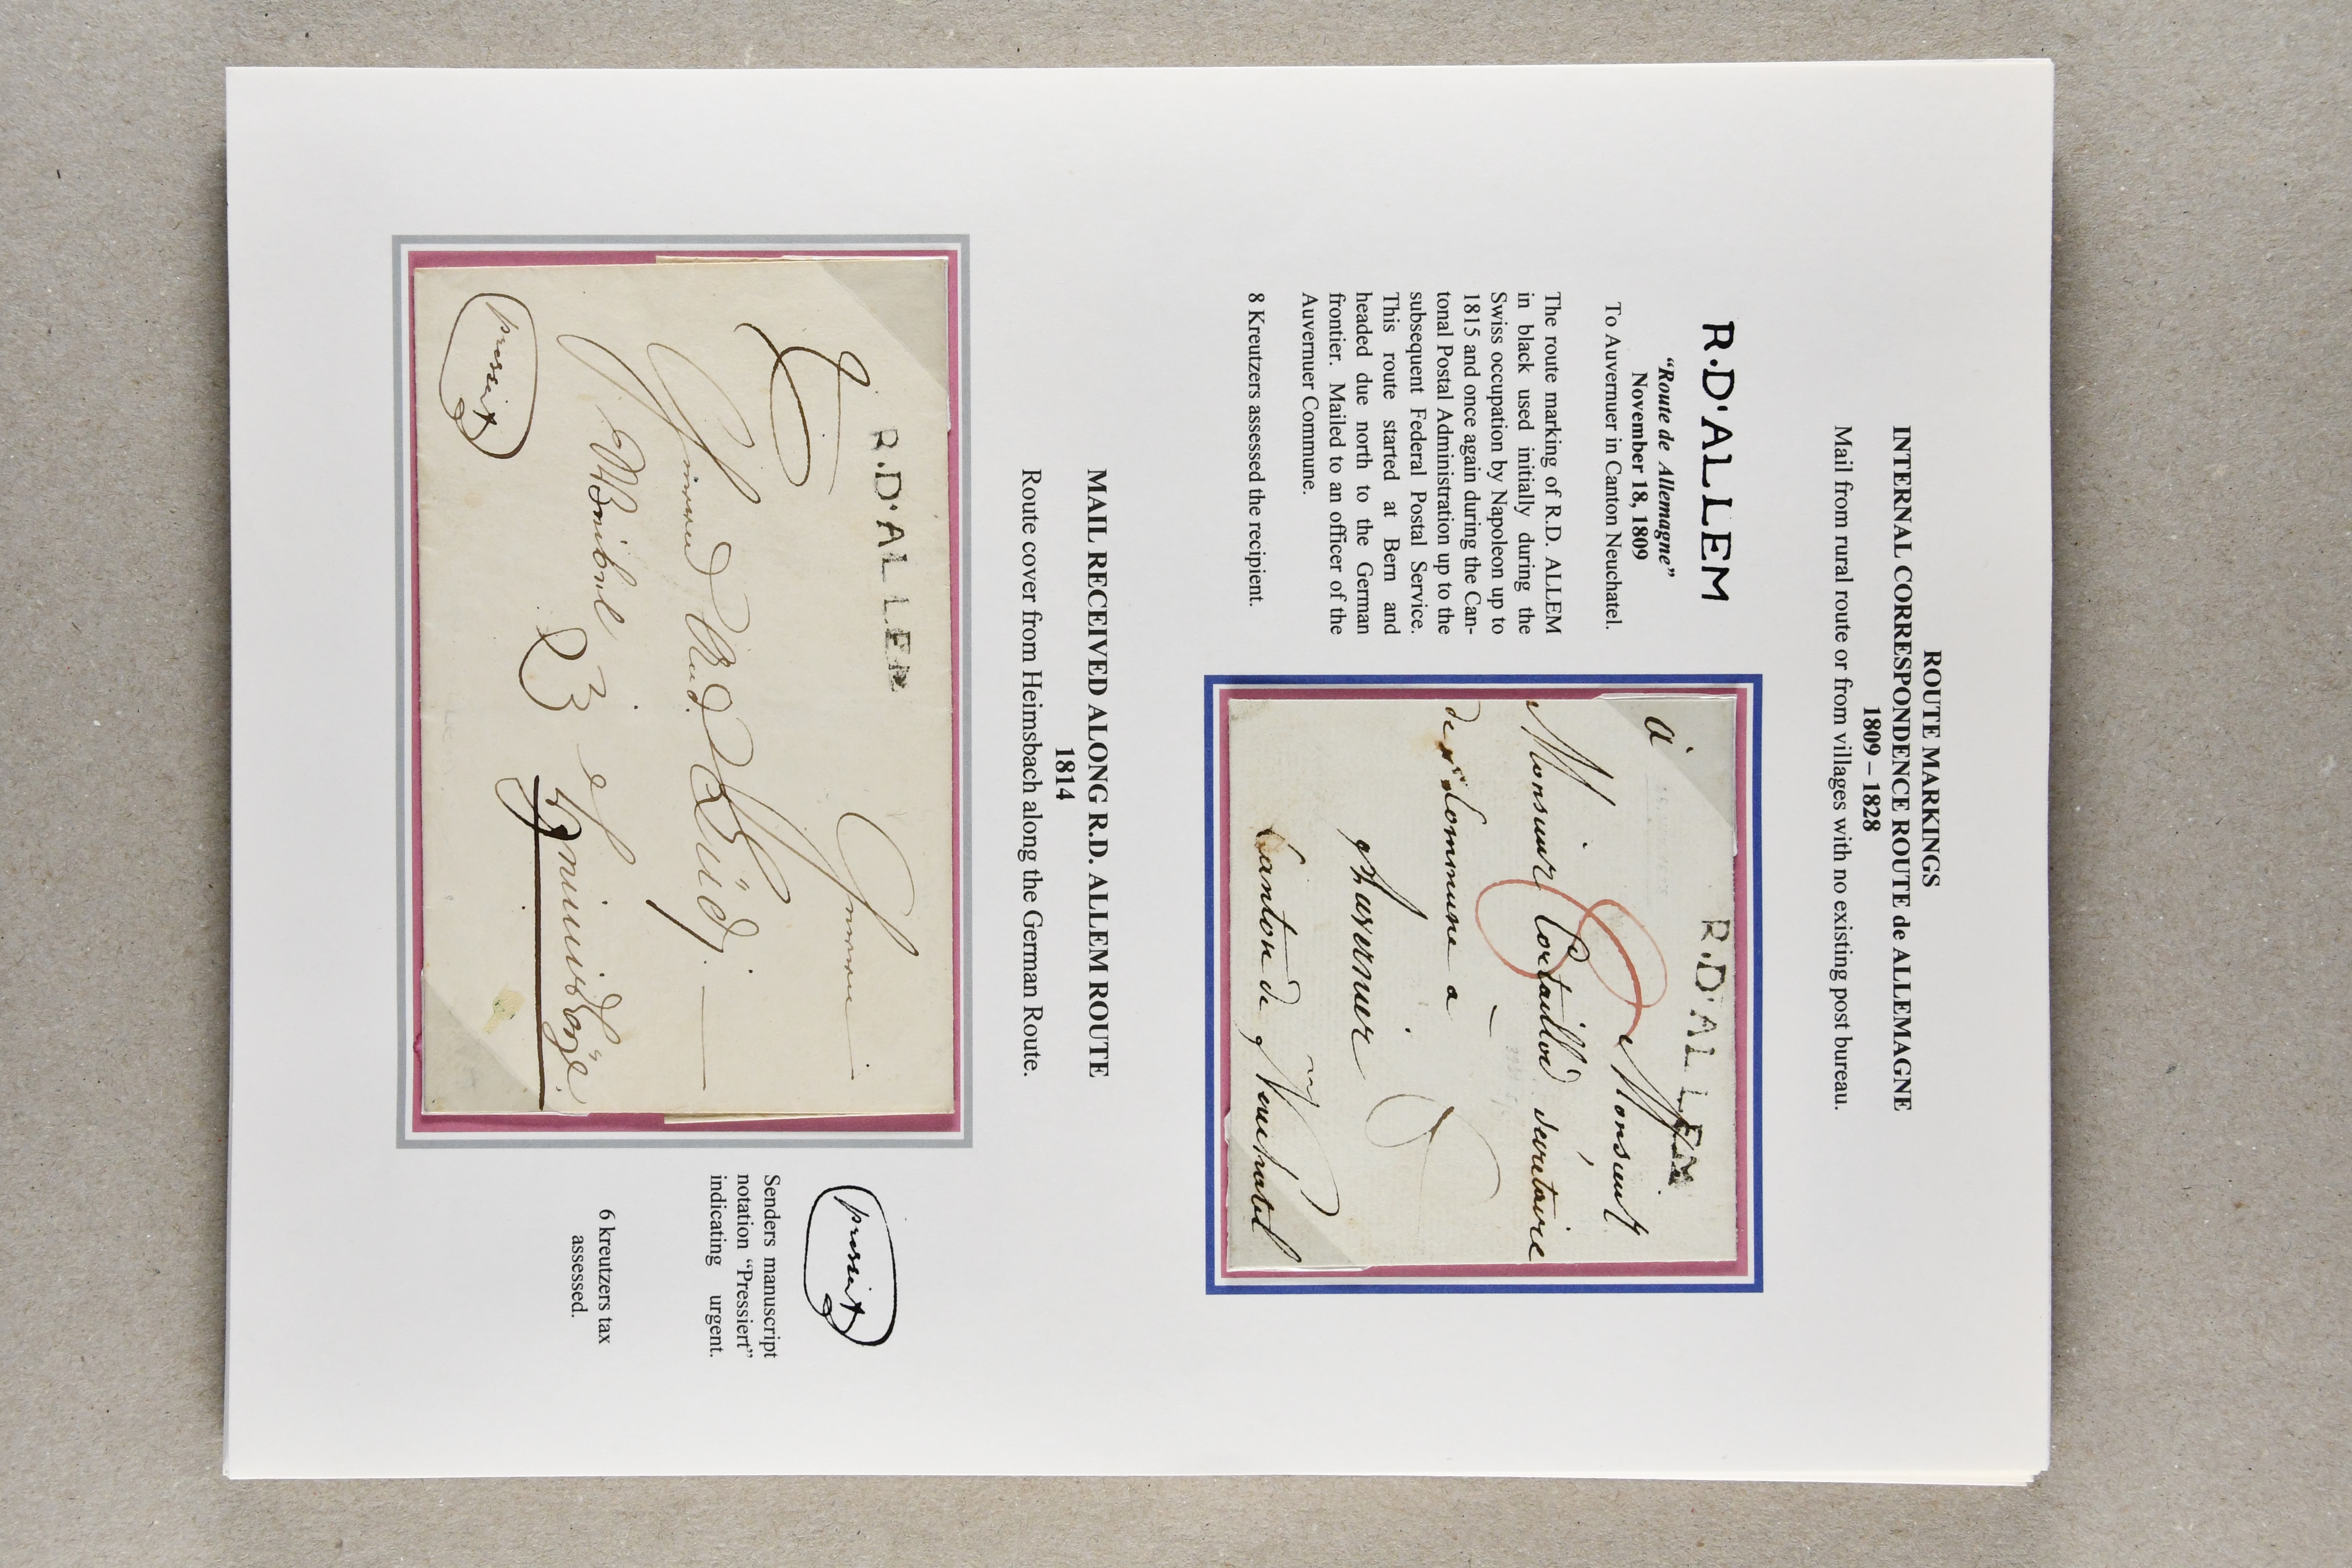 ROUTE MARKINGS
INTERNAL CORRESPONDENCE ROUTE de ALLEMAGNE
1809 – 1828
Mail from rural route or from villages with no existing post bureau.
R.D'ALLEM
“Route de Allemagne”
November 18, 1809
To Auvernuer in Canton Neuchatel.
The route marking of R.D. ALLEM
in black used initially during the
Swiss occupation by Napoleon up to
1815 and once again during the Can-
tonal Postal Administration up to the
subsequent Federal Postal Service.
This route started at Bern and
headed due north to the German
frontier. Mailed to an officer of the
Auvernuer Commune.
8 Kreutzers assessed the recipient.
R.D'ALLEM
a Monsieur
Monsieur Cortaillod secretaire
de Commune a
Auvernier
Canton de Neuchatel
MAIL RECEIVED ALONG R.D. ALLEM ROUTE
1814
Route cover from Heimsbach along the German Route.
R.D'ALLEM
pressirt
pressirt
Senders manuscript
notation “Pressiert”
indicating urgent.
6 kreutzers tax
assessed.